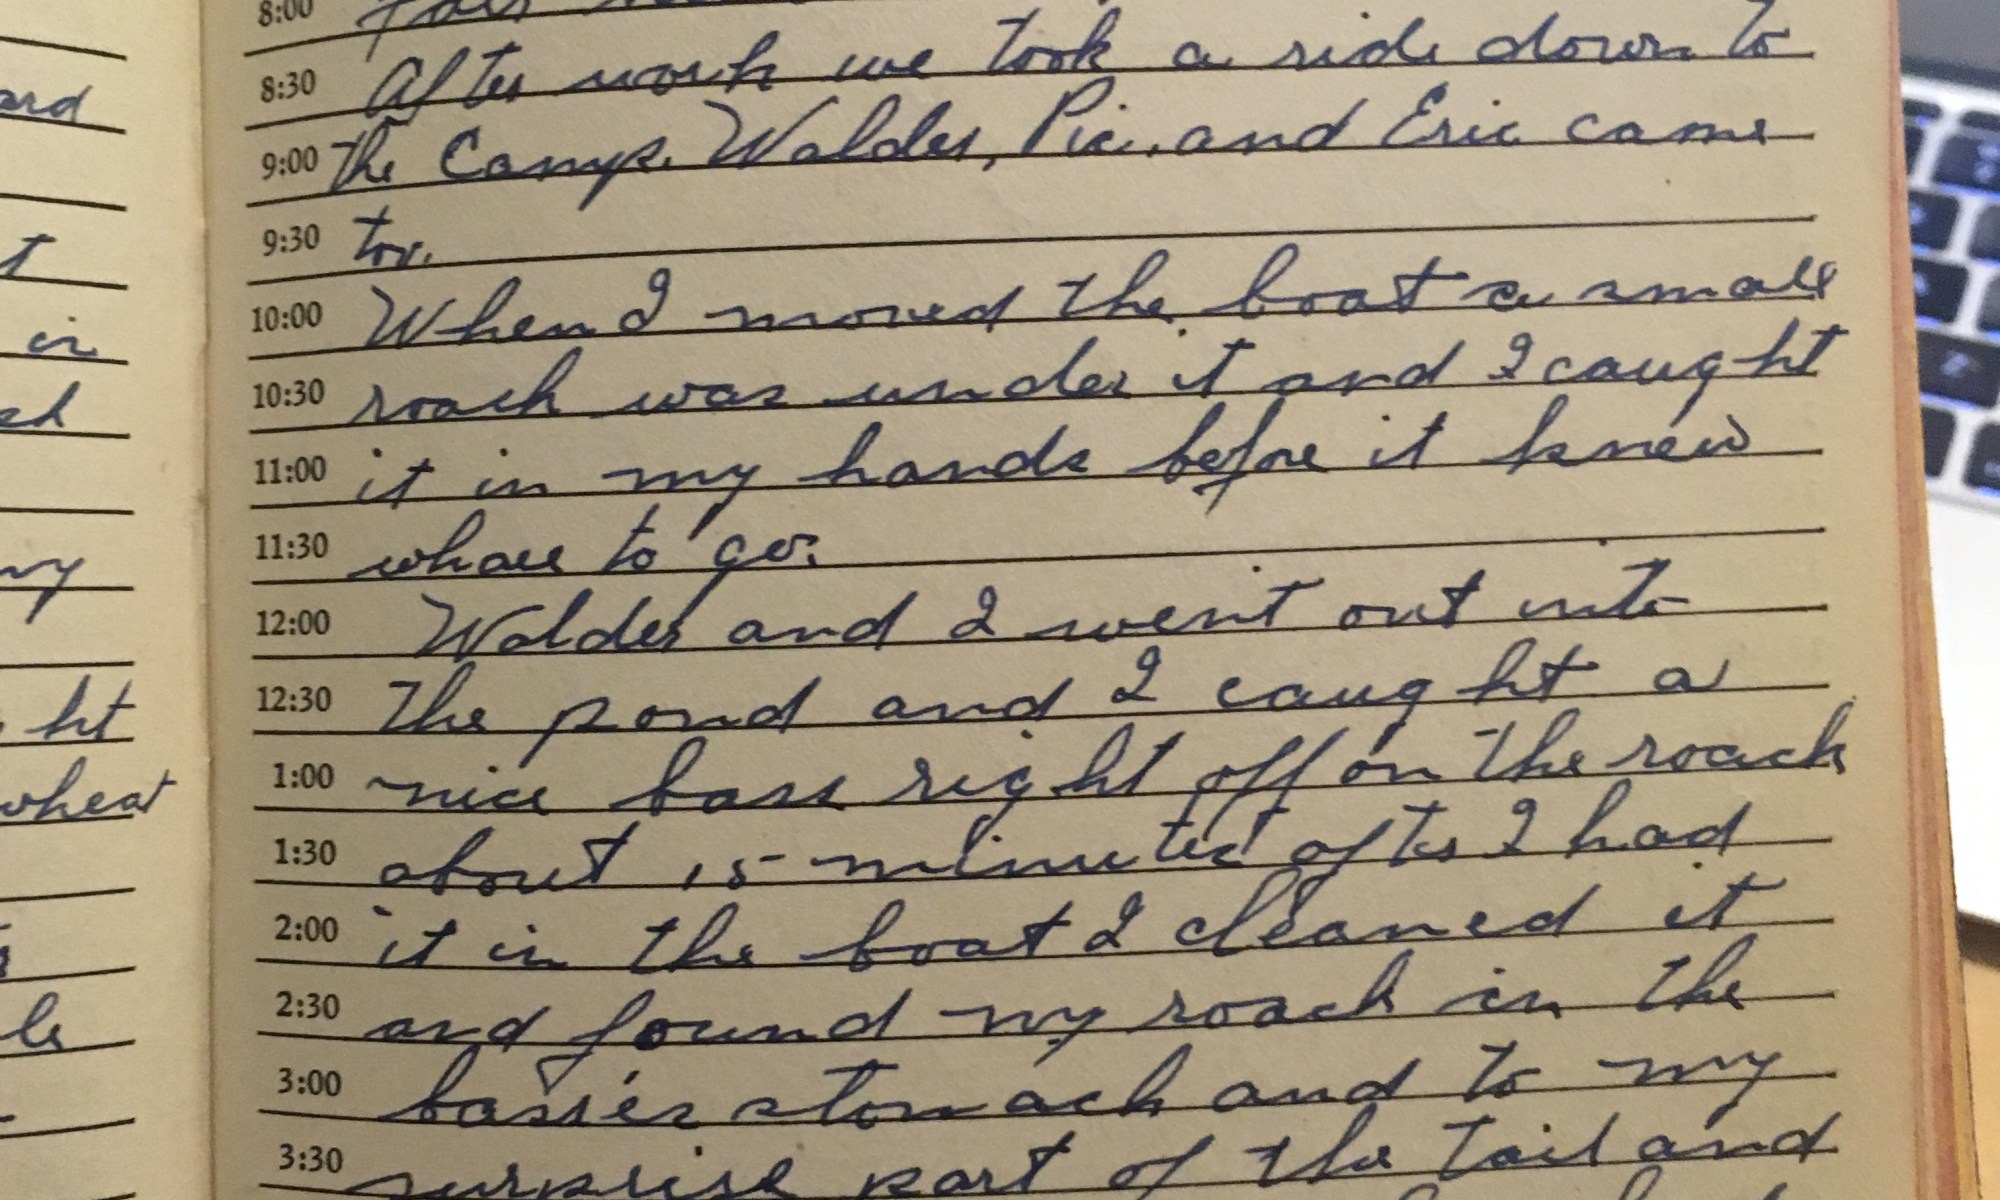 8:00
8:30 After work we took a ride down to
9:00 the Camp. Walder, Pic, and Eric came
9:30 too.
10:00 When I moved the boat a small
10:30 roach was under it and I caught
11:00 it in my hands before it knew
11:30 whare to go.
12:00 Walder and I went out into
12:30 the pond and I caught a
1:00 nice bass right off on the roach
1:30 about 15 minutes after I had
2:00 it in the boat I cleaned it
2:30 and found my roach in the
3:00 basses stomach and to my
3:30 surprise part of the tail and
ard
t
in
ht
wheat